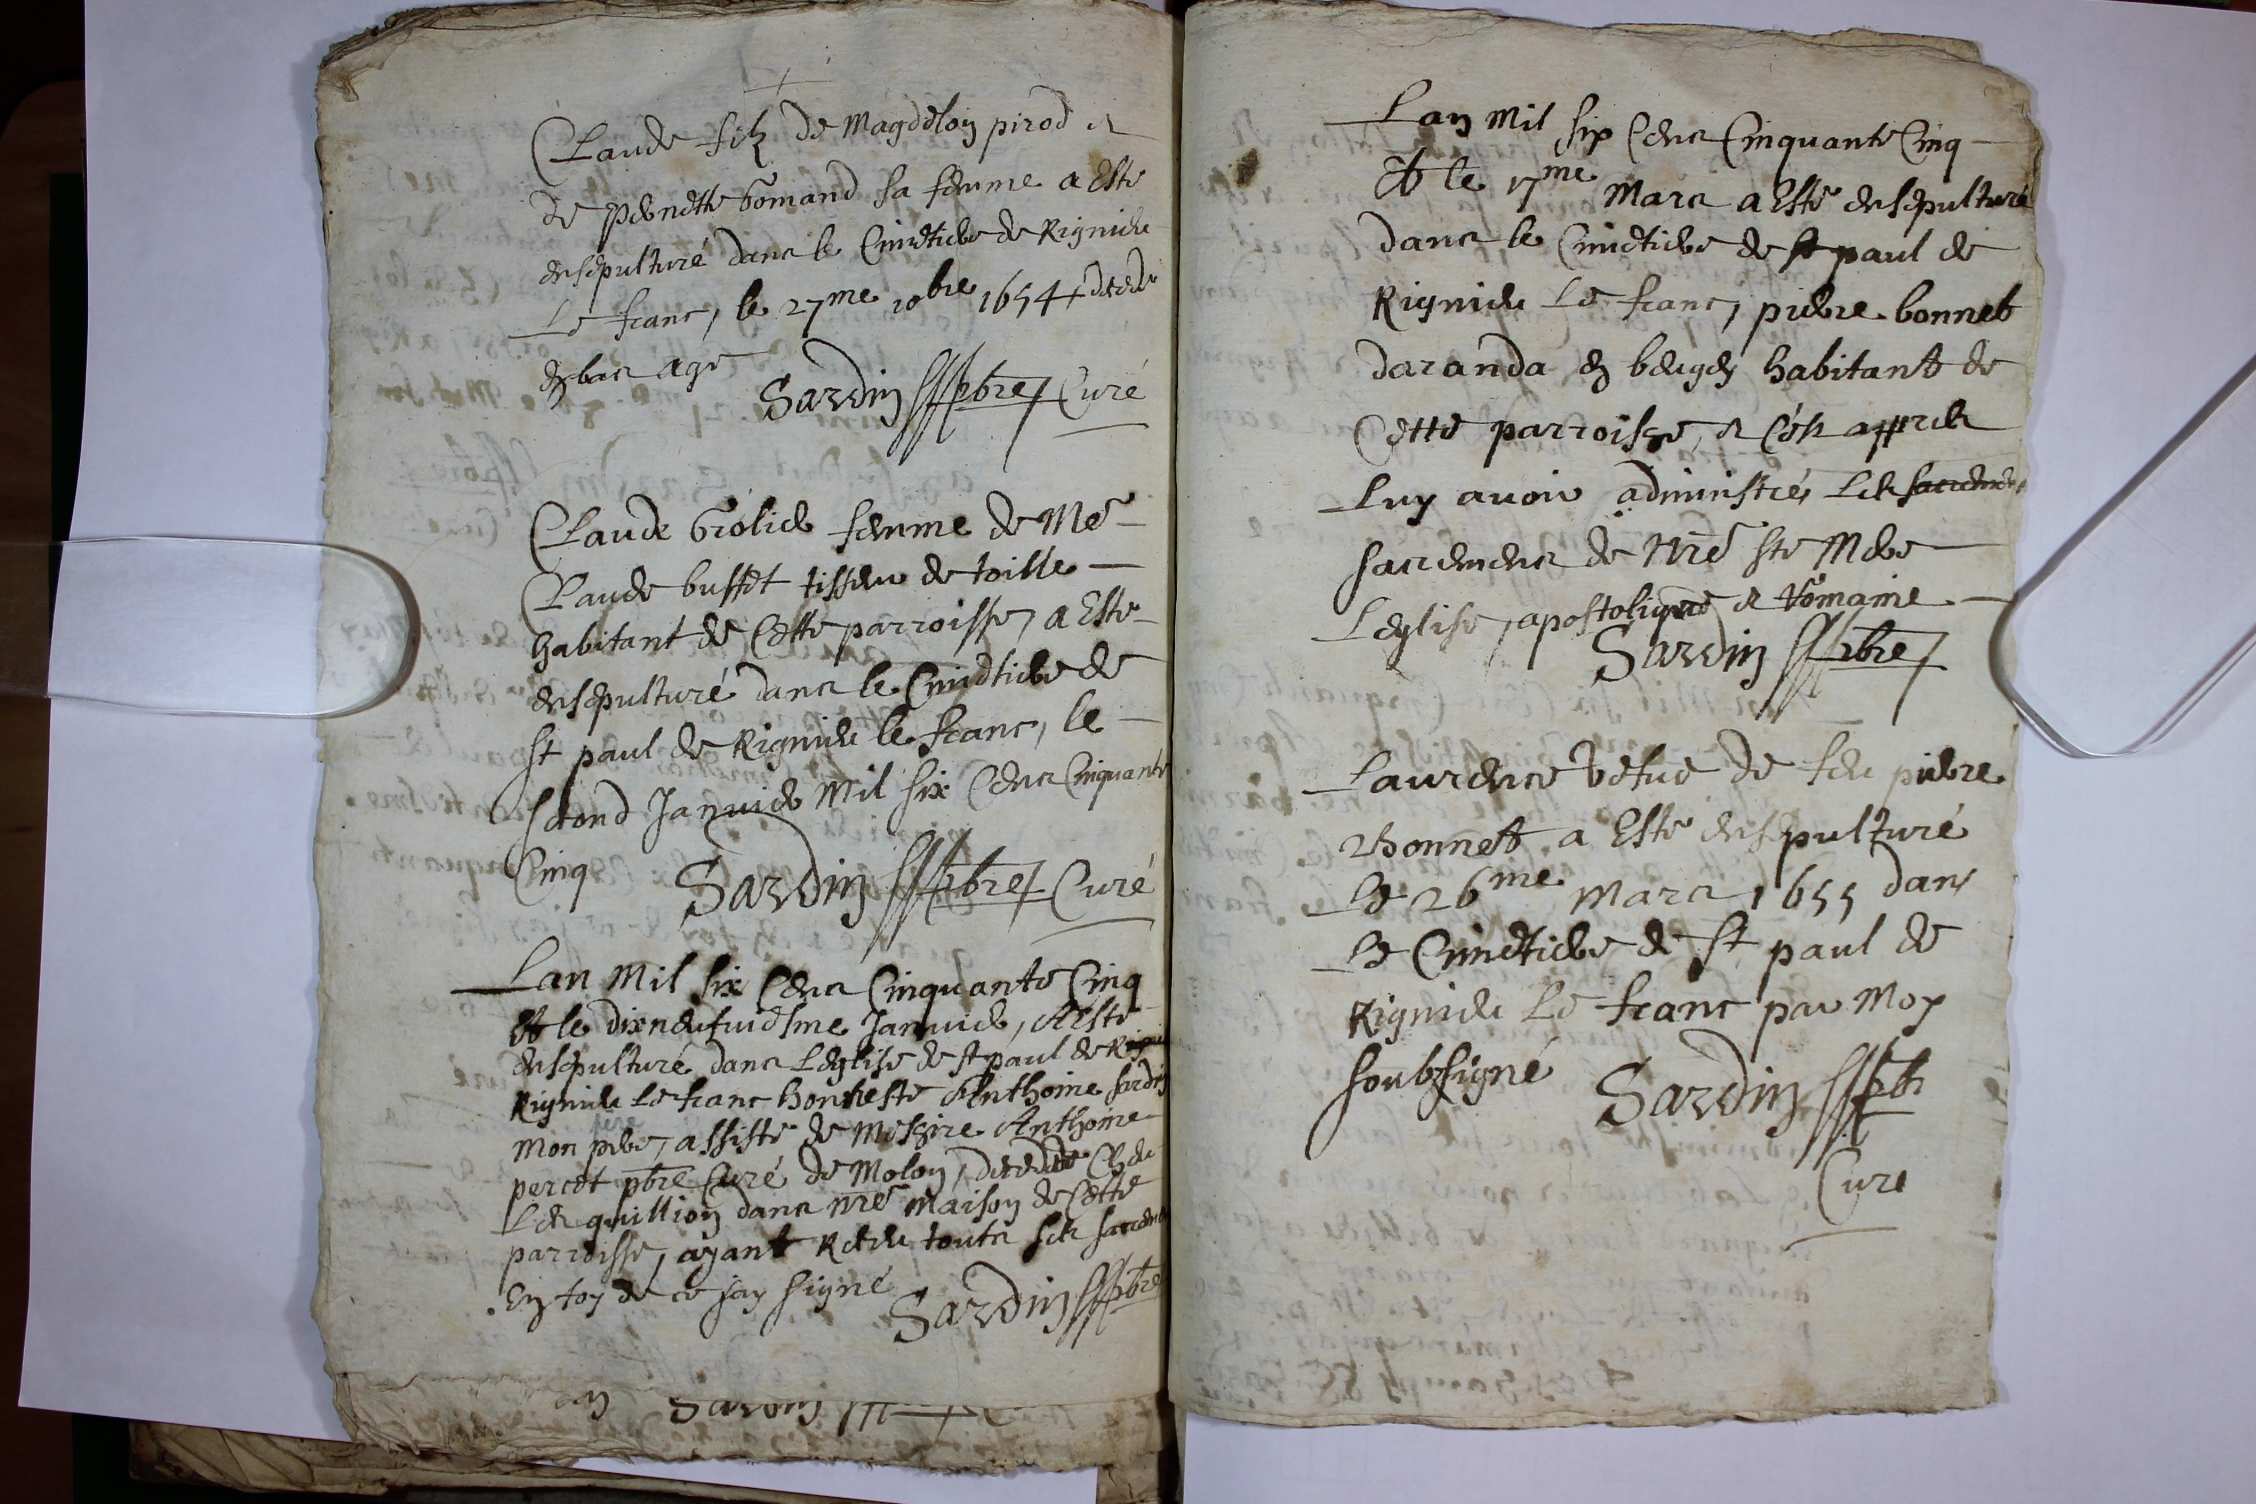 Claude filz de Magdelon pirod et
de pernette Gomand sa femme a Este
ensepulturé dans le Cimetiere de Rignieu
Le franc, le 27me 10bre 1654 decede
en bas age
Sardin pbre Curé
Claude Grolier femme de Me
Claude buffet tisseur de toille
habitant de Cette parroisse, a Este
ensepulturé dans le Cimetiere de
st paul de Rignieu le franc, le
second Januier Mil six Cens Cinquante
Cinq
Sardin pbre Curé
Lan Mil six Cens Cinquante Cinq
Et le dixneufuiesme Januier, A Este
ensepulturé dans Leglise de st paul de
Rignieu Le franc honneste Anthoine sardin
Mon pere, assisté de Messire Anthoine
percet pbre Curé de Molon, decedé Cheu
Les quillion dans nre Maison de Cette
parroisse, ayant Receu touts ses sacremens
En foy de ce jay signé
Sardin pbre
Sardin
Lan Mil six Cens Cinquante Cinq
Et le 17me Mars a Esté ensepulturé
dans le Cimetiere de st paul de
Rignieu Le franc, pierre bonnet
daranda en beugey habitant de
Cette parroisse, et Cest appres
Luy auoir administrés Les sacremens
sacremens de Nre ste Mere
Leglise, apostolique et Romaine
Sardin pbre
Laurence vefue de feu pierre
Bonnet a Este ensepulturé
Le 26me Mars 1655 dans
Le Cimetiere de st paul de
Rignieu Le franc par Moy
soubsigné
Sardin pbr
Curé